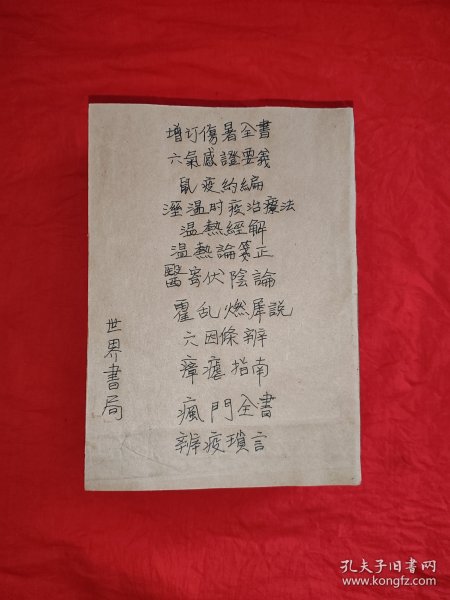 增订傷暑全書
六氣感證要義
鼠疫約編
溼溫时疫治療法
温熱經解
温熱論箋正
醫寄伏陰論
霍乱燃犀説
六因條辨
瘴瘧指南
瘋門全書
辨疫瑣言
世界書局
孔夫子旧书网
www.kongfz.com